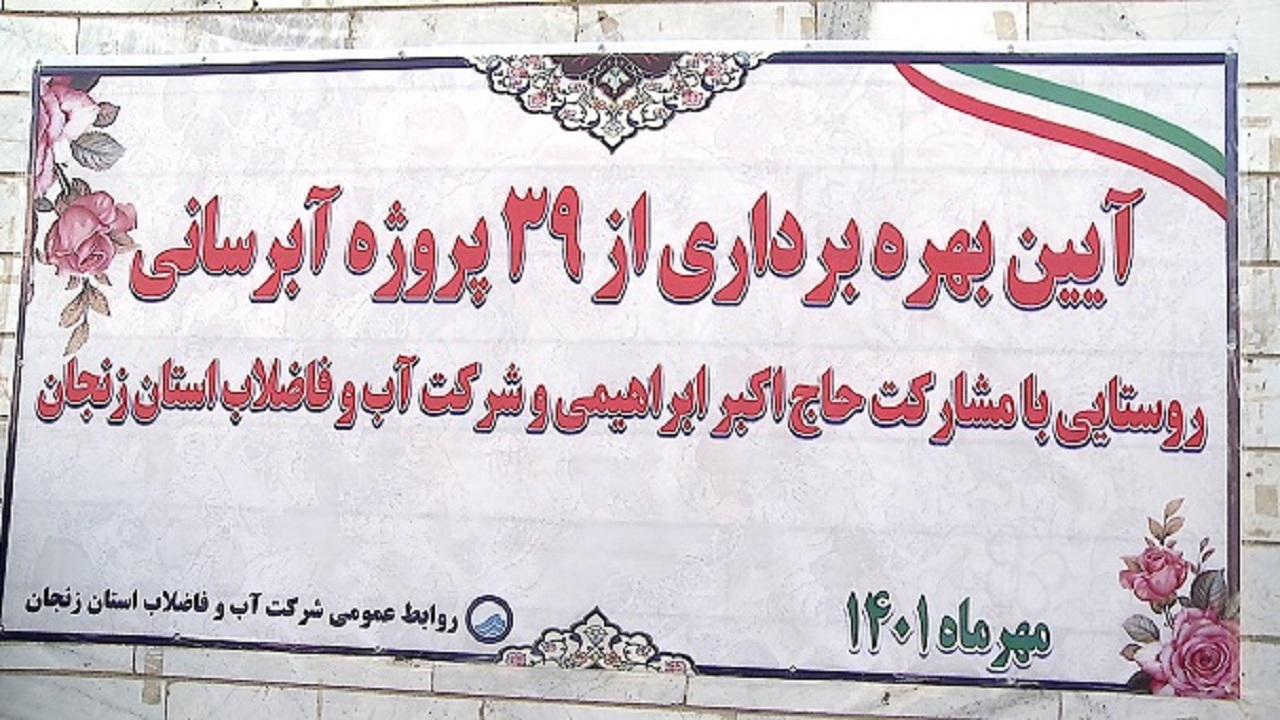 آیین بهره برداری از ۳۹ پروژه آبرسانی
روستایی با مشارکت حاج اکبر ابراهیمی و شرکت آب و فاضلاب استان زنجان
مهرماه ۱۴۰۱
روابط عمومی شرکت آب و فاضلاب استان زنجان